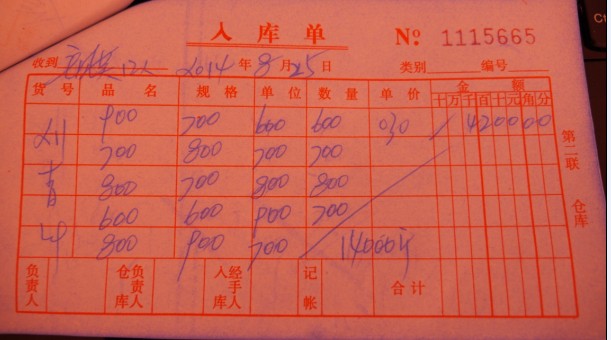 入库单 № 1115665
收到 12人 2014年8月25日 类别 编号
货号 品名 规格 单位 数量 单价 金额
十万千百十元角分
900 700 600 600 030 420000
700 800 700 700
800 700 800 800
600 600 900 700
800 900 700 14000斤
负责人 仓库负责人 经手人 记帐 合计
第二联 仓库